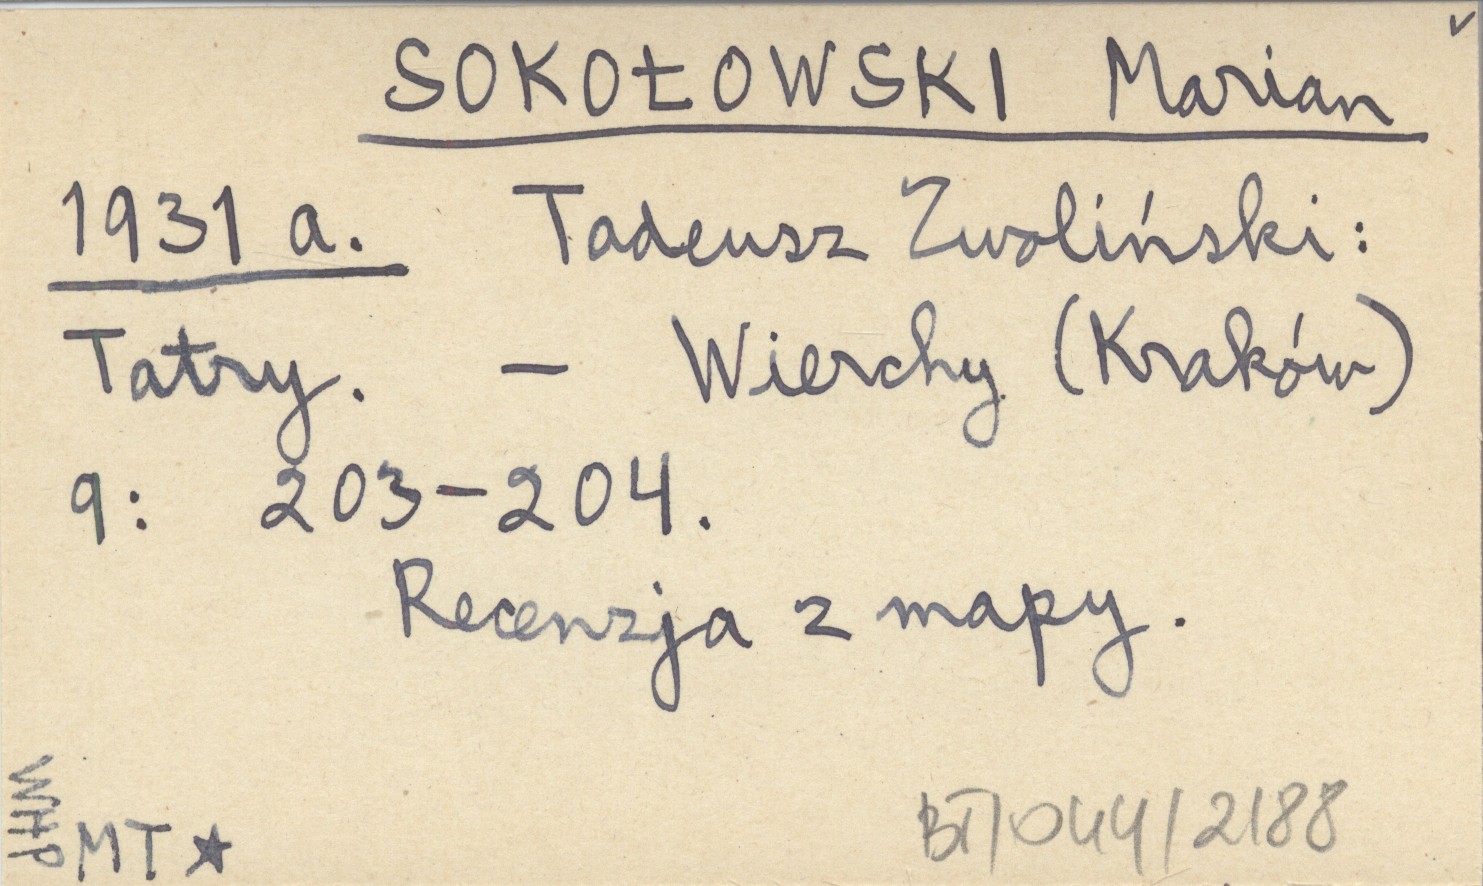 SOKOŁOWSKI Marian
1931 a. Tadeusz Zwoliński:
Tatry. – Wierchy (Kraków)
9: 203–204.
Recenzja z mapy.
WHP
MT ★
BT/044/2188